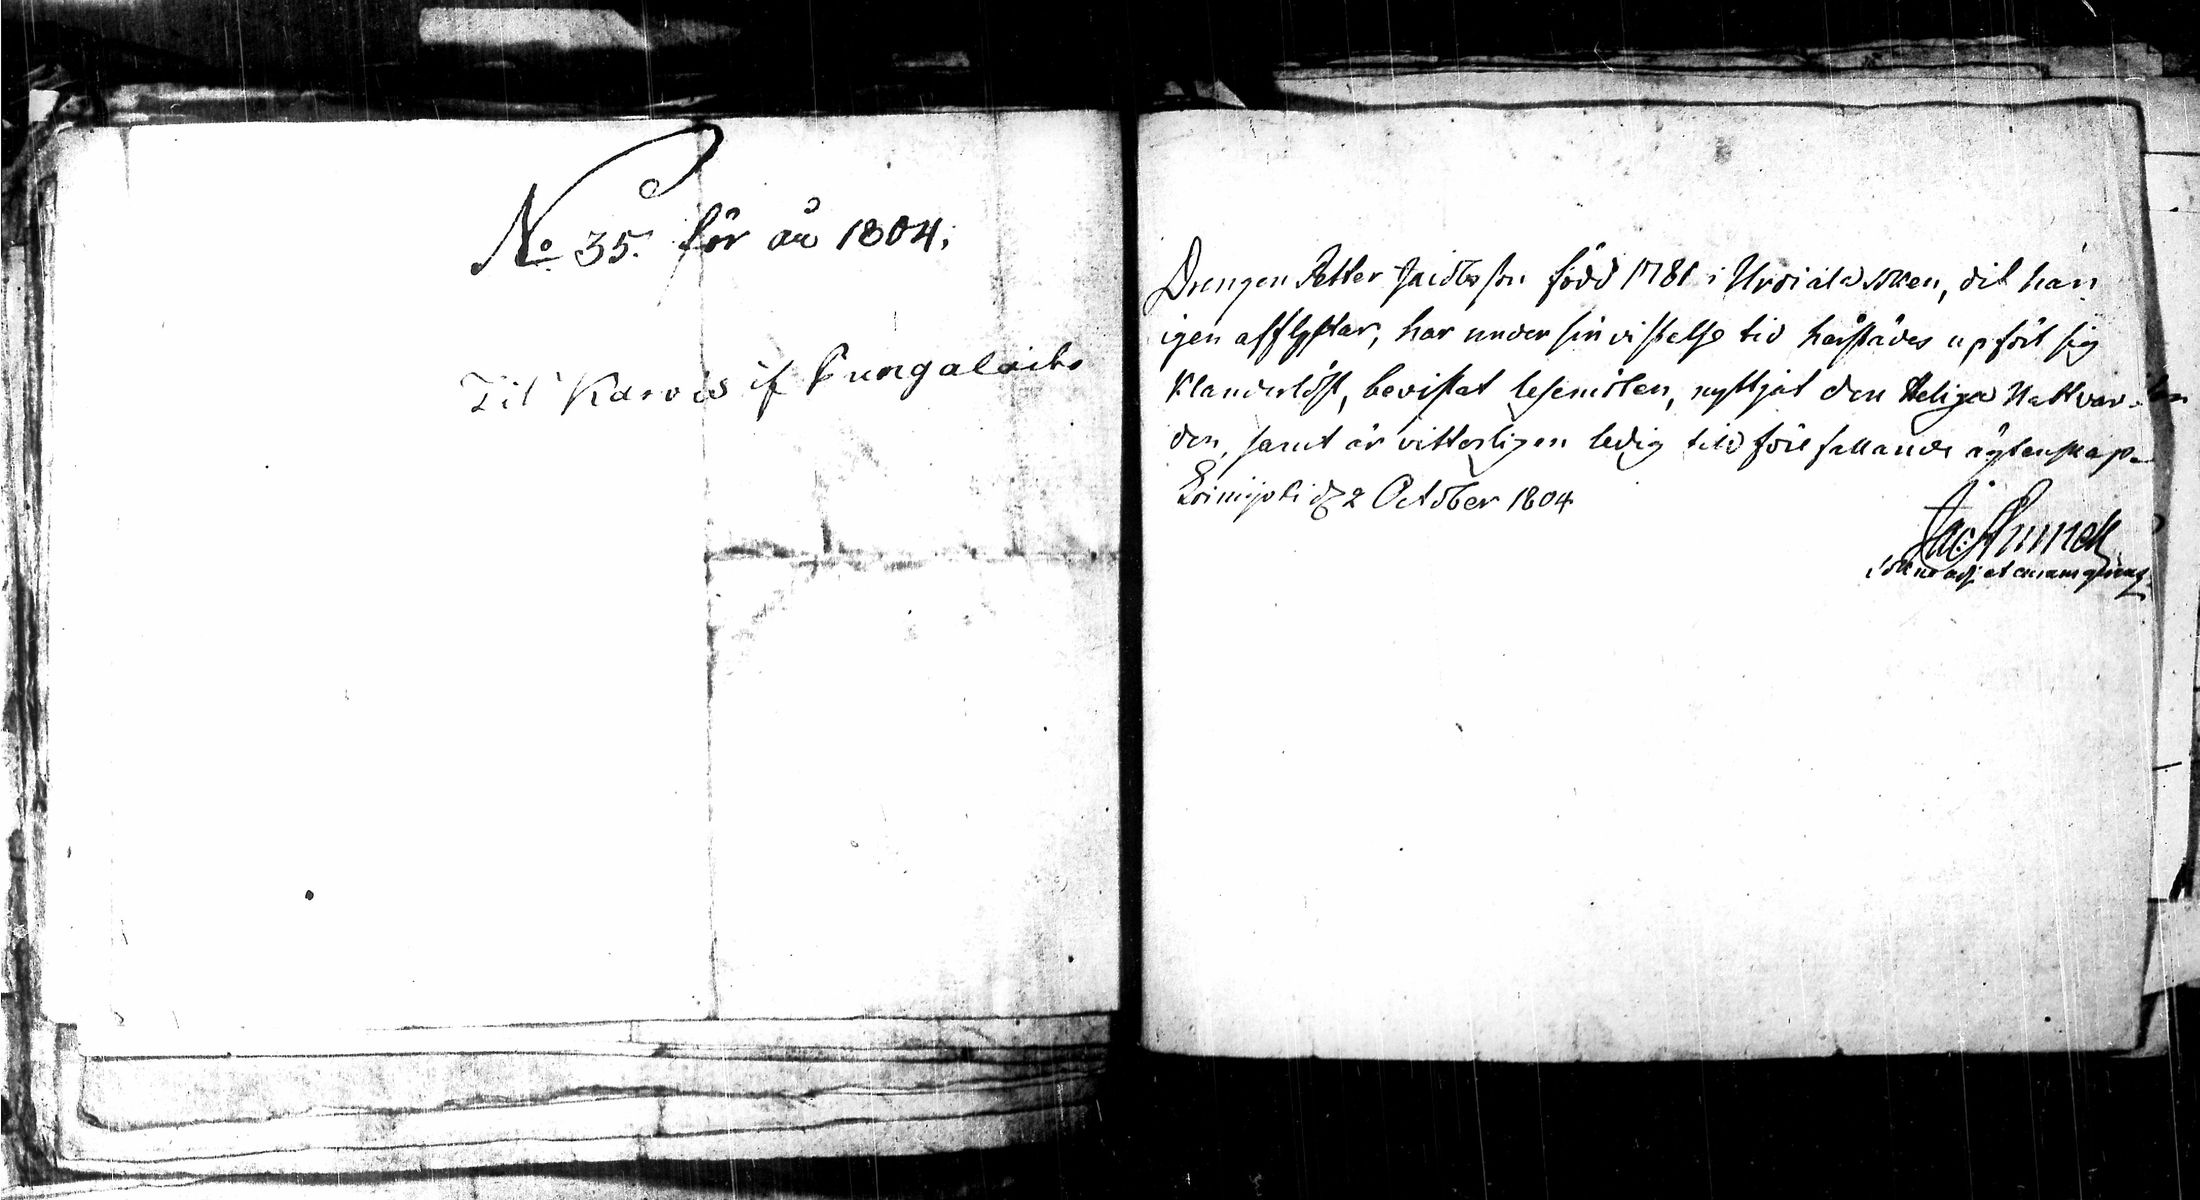 No 35. för år 1804.
Til Karvis if Pungalaitio
Drengen Petter Jacobsson född 1781 i Urdiala Soken, dit han
igen afflyttar, har under sin vistelse tid härstädes upfört sig
klanderlöst, bevistat läsemöten, nyttjat den Heliga Nattvar-
den, samt är vitterligen ledig till förefallande ägtenskap.
Loimijoki d 2 October 1804